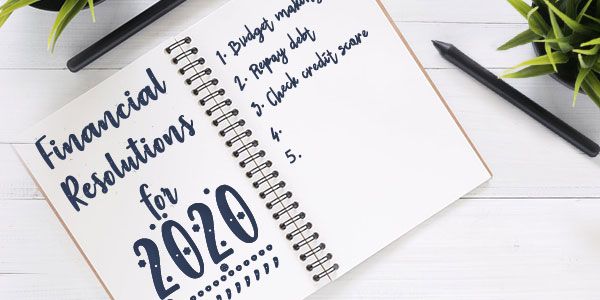 Financial
Resolutions
for
2020
1. Budget making
2. Repay debt
3. Check credit scare
4.
5.